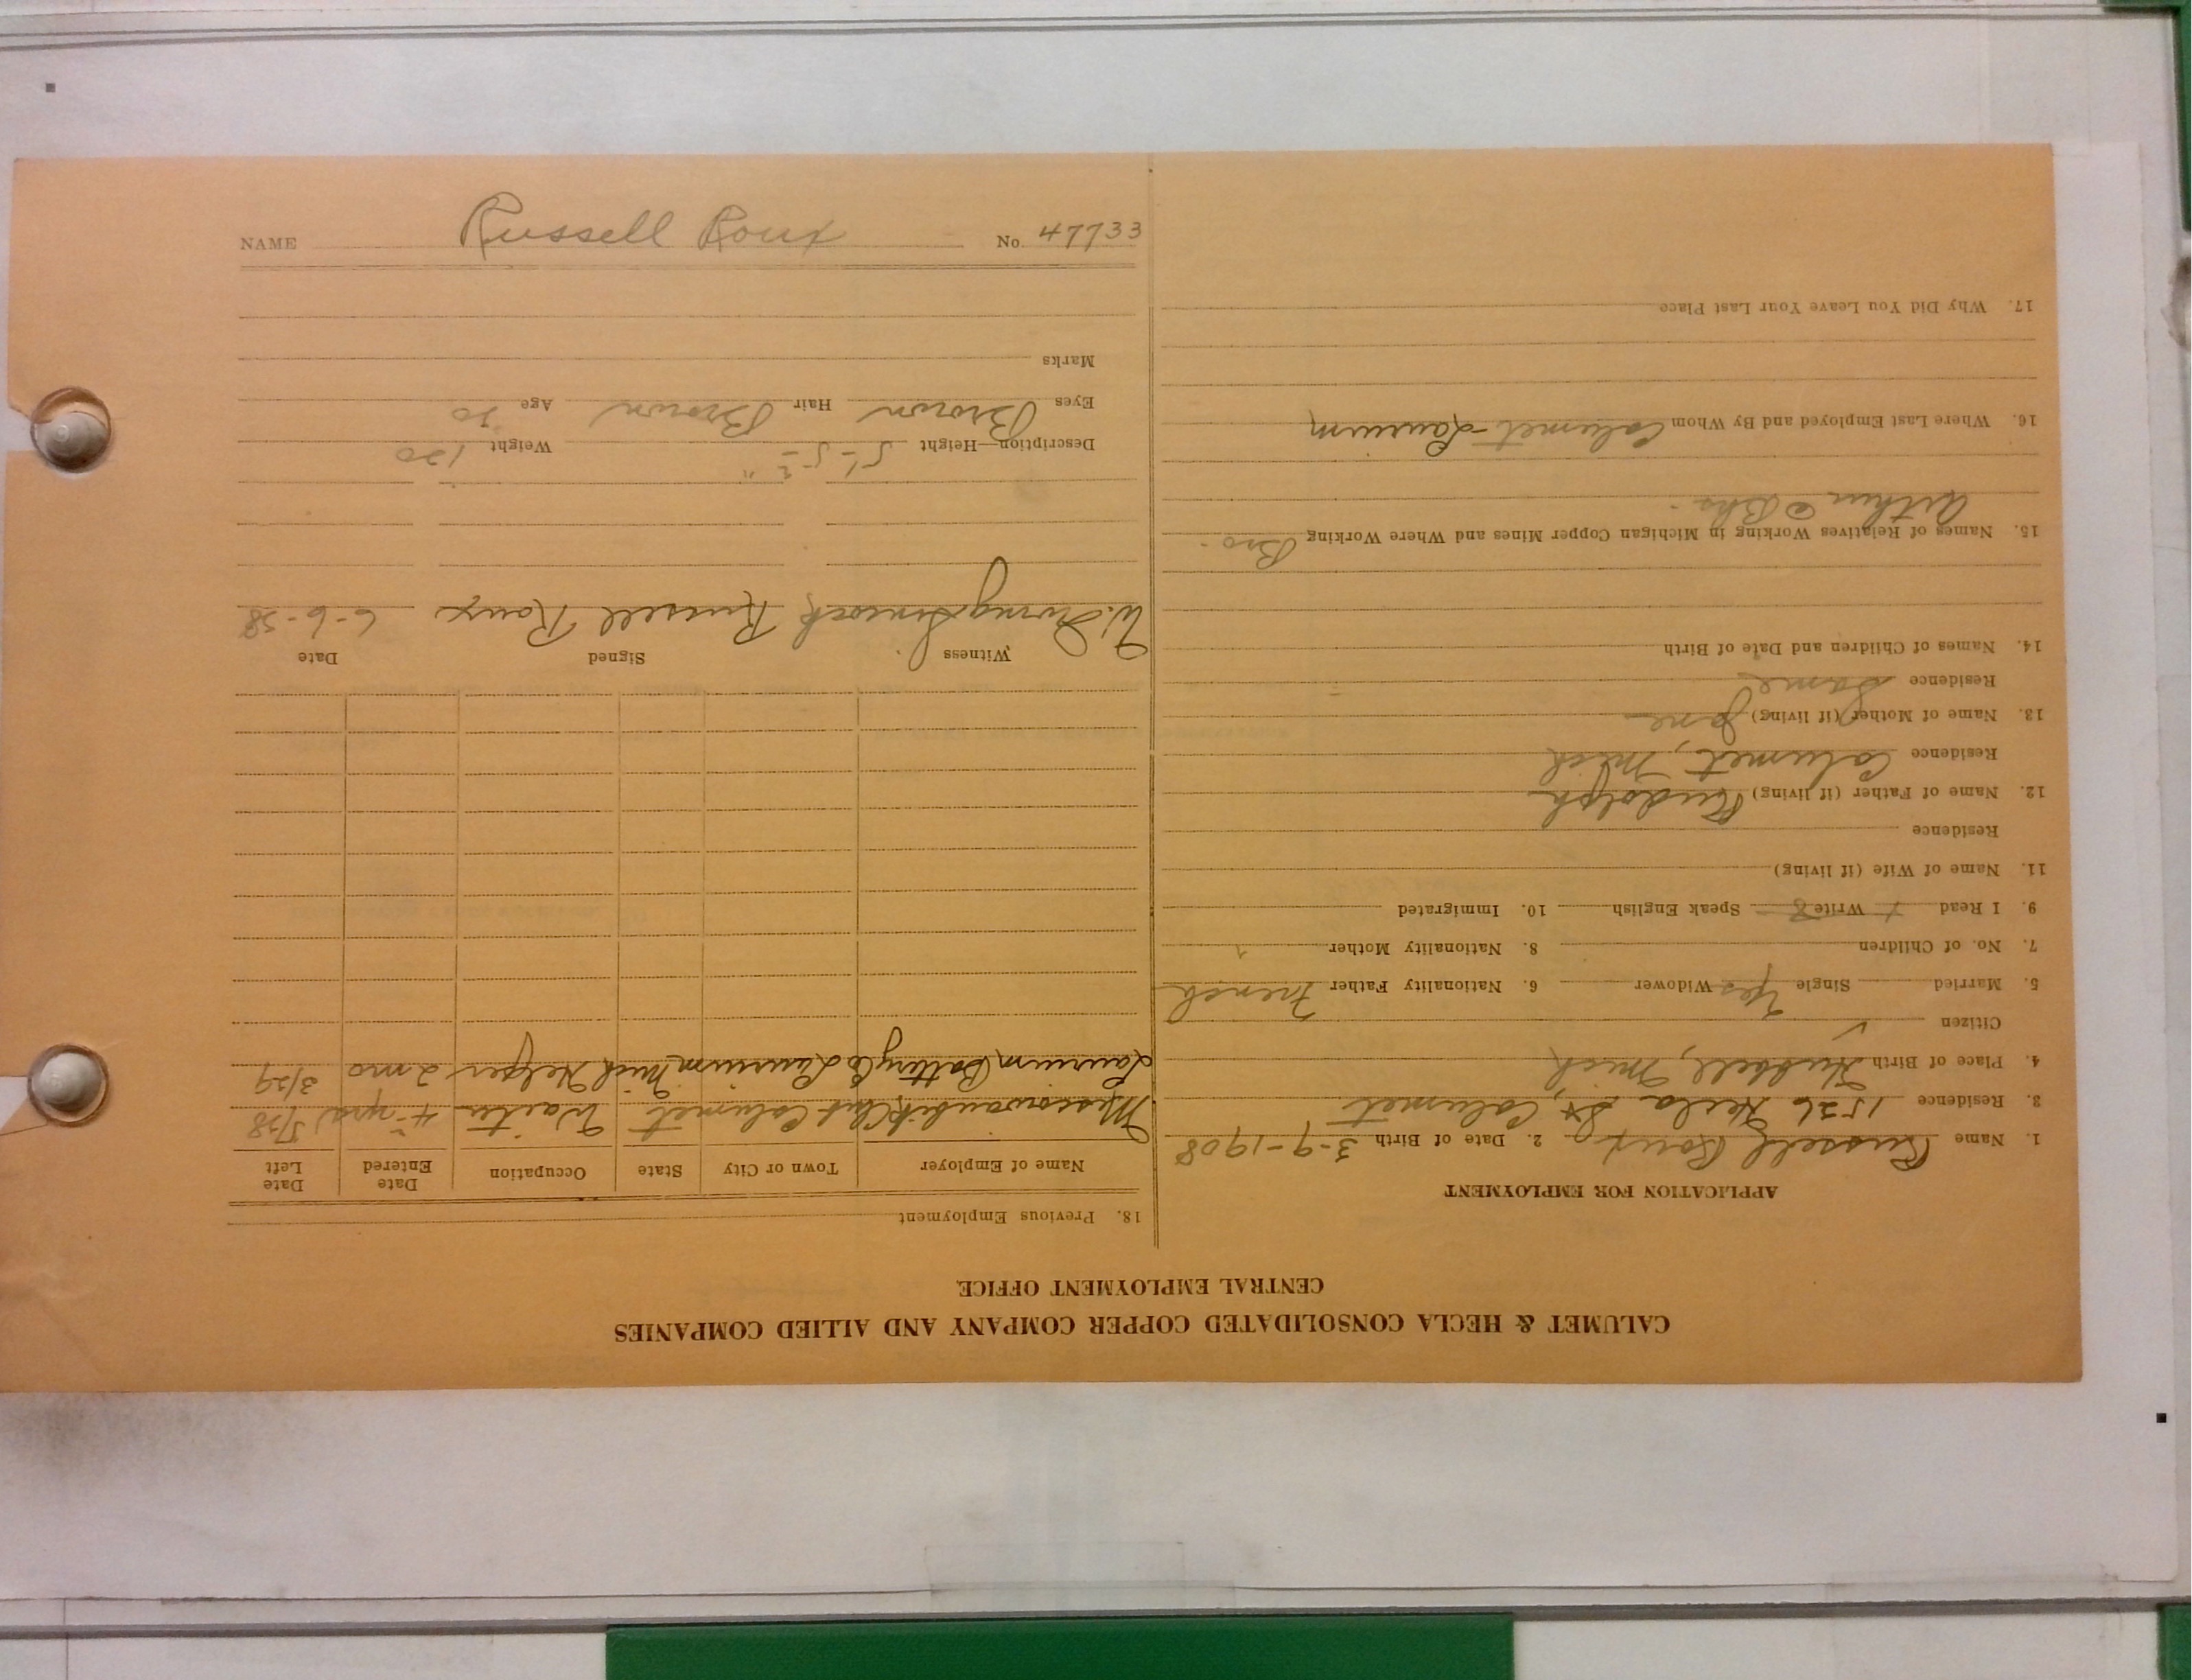 NAME Russell Roux No. 47733
CALUMET & HECLA CONSOLIDATED COPPER COMPANY AND ALLIED COMPANIES
CENTRAL EMPLOYMENT OFFICE
APPLICATION FOR EMPLOYMENT
1. Name Russell Roux 2. Date of Birth 3-9-1908
3. Residence 1526 Hecla St, Calumet
4. Place of Birth Hubbell, Mich
Citizen ✓
5. Married Single Yes Widower 6. Nationality Father French
7. No. of Children 8. Nationality Mother
9. I Read Write Speak English 10. Immigrated
11. Name of Wife (if living)
Residence
12. Name of Father (if living) Rudolph
Residence Calumet, Mich
13. Name of Mother (if living) Jane
Residence Same
14. Names of Children and Date of Birth
15. Names of Relatives Working in Michigan Copper Mines and Where Working Bro.
Arthur
16. Where Last Employed and By Whom Calumet-Laurium
17. Why Did You Leave Your Last Place
18. Previous Employment
Name of Employer Town or City State Occupation Date Entered Date Left
Miscowaubik Club Calumet Waiter 4 yrs 5/38
Laurium Battery Co Laurium Mich Helper 2 mo 3/29
Witness Signed Date
W. Irving Russell Roux 6-6-38
Description—Height 5'-5 Weight 120
Eyes Brown Hair Brown Age 30
Marks